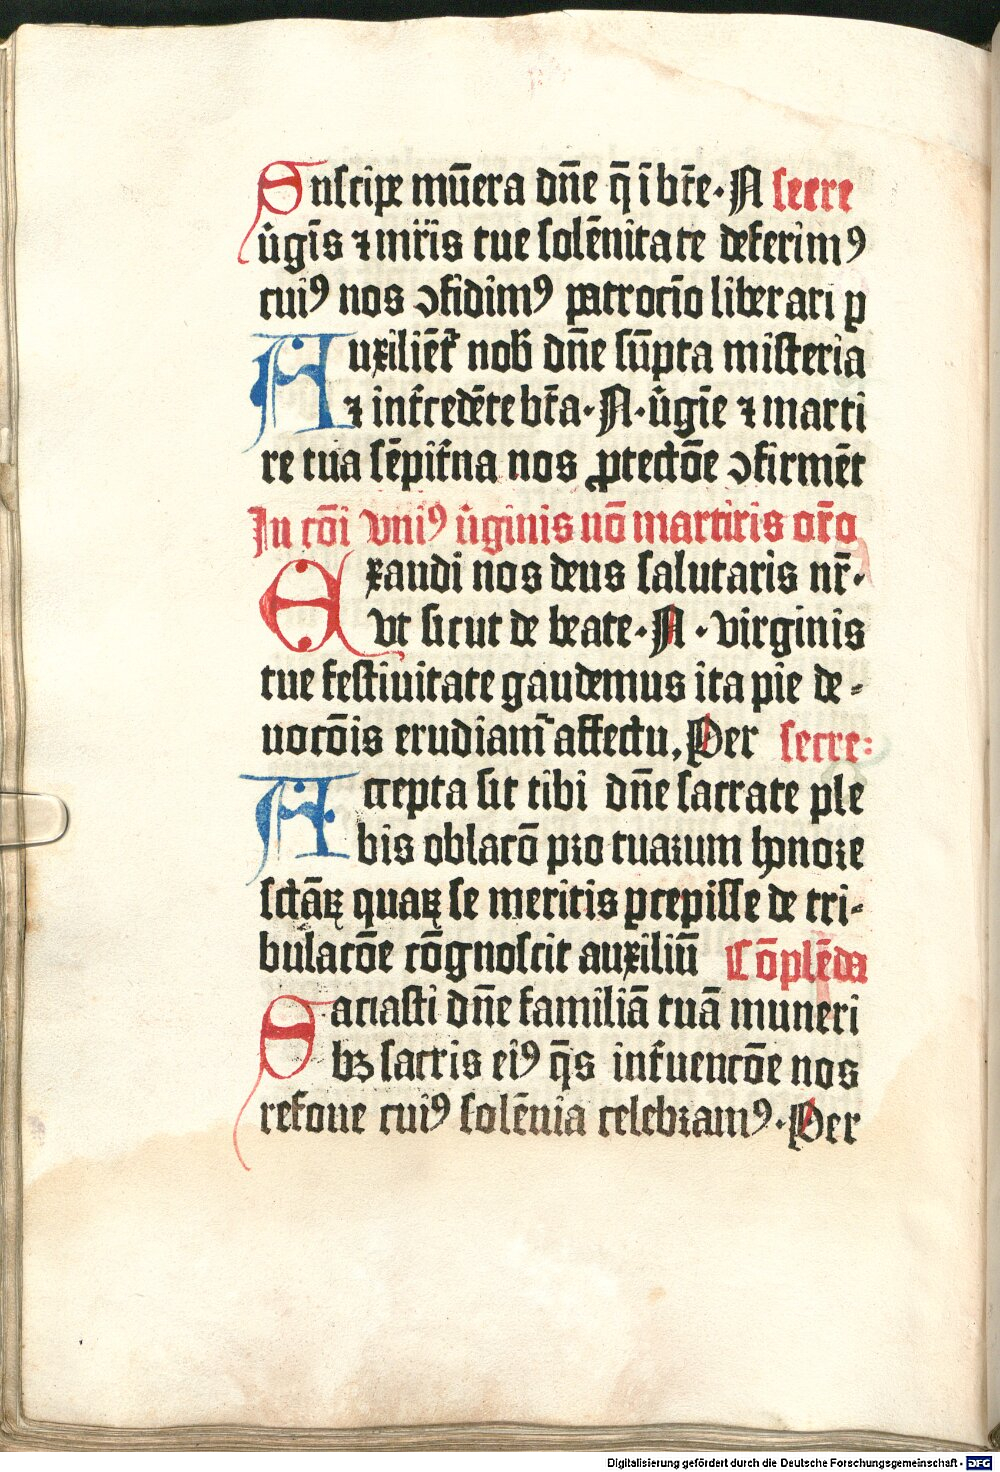 Suscipe mūera dn̄e q̄ ī bt̄e · N secre
v̄gīs ⁊ mr̄is tue solēnitate deferimꝰ
cuiꝰ nos ↄfidimꝰ patrocīo liberari ꝑ
Auxiliēt̄ nob̄ dn̄e sūpta misteria
⁊ int̄cedēte bt̄a · N · v̄gīe ⁊ marti
re tua sēpit̄na nos ꝓtectōe ↄfirmēt
In cōi vniꝰ v̄ginis nō martiris or̄o
Exaudi nos deus salutaris nr̄ ·
vt sicut de beate · N · virginis
tue festiuitate gaudemus ita pie de-
uocōis erudiam̄ affectu, Per secre:
Accepta sit tibi dn̄e sacrate ple
bis oblacō pro tuarum hōnore
sctāꝝ quaꝝ se meritis ꝑcepisse de tri-
bulacōe cōgnoscit auxiliū Cōplēda
Saciasti dn̄e familiā tuā muneri
bꝫ sacris eiꝰ q̄s int̄uencōe nos
refoue cuiꝰ solēnia celebramꝰ · Per
Digitalisierung gefördert durch die Deutsche Forschungsgemeinschaft - DFG